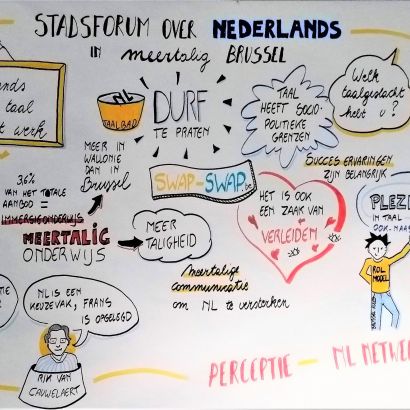 STADSFORUM OVER NEDERLANDS
IN meertalig BRUSSEL
taal
werk
NL
TAALBAD
DURF
TE PRATEN
TAAL
HEEFT SOCIO-
POLITIEKE
GRENZEN
Welk
taalgeslacht
hebt u?
MEER IN
WALLONIE
DAN IN
Brussel
3,6%
VAN HET TOTALE
AANBOD =
IMMERSIEONDERWIJS
MEERTALIG
ONDERWIJS
MEER
TALIGHEID
SWAP-SWAP.be
SUCCES ERVARINGEN
ZIJN BELANGRIJK
HET IS OOK
EEN ZAAK VAN
VERLEIDEN
PLEZI
IN TAAL
OOK NAAS
ROL
MODEL
meertalige
communicatie
om NL te versterken
ME
NL IS EEN
KEUZEVAK, FRANS
IS OPGELEGD
RIK VAN
CAUWELAERT
PERCEPTIE — NL NETWE